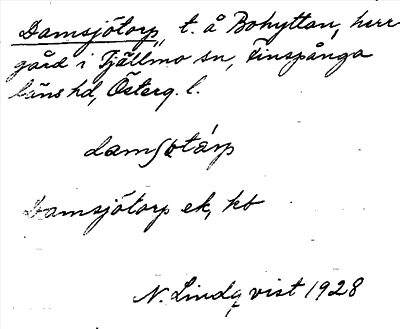 Damsjötorp, t. å Bohyttan, herr
gård i Tjällmo sn, Finspånga
läns hd, Österg. l.
Damsjötorp ek, kb
N. Lindqvist 1928